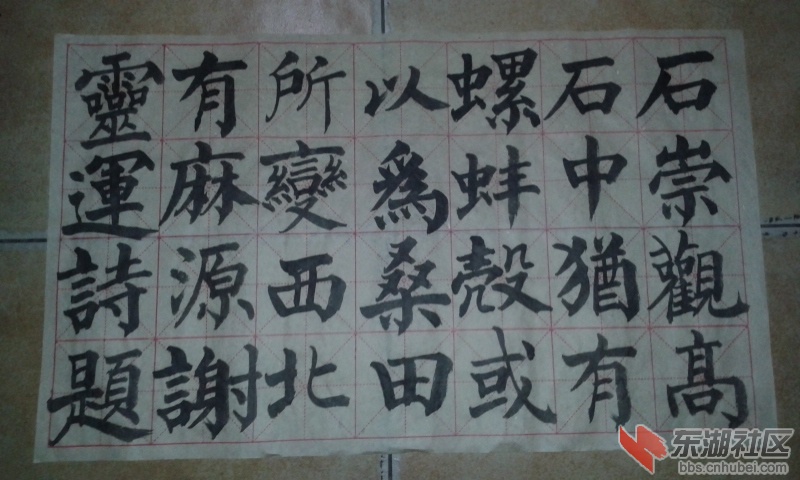 石崇觀高
石中猶有
螺蚌殼或
以爲桑田
所變西北
有麻源謝
靈運詩題
东湖社区
bbs.cnhubei.com